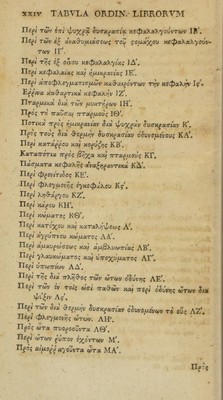 xxiv TABVLA ORDIN. LIBRORVM
Περὶ τῶν ἐπὶ ψυχρᾷ δυσκρασίᾳ κεφαλαλγούντων ΙΒ΄.
Περὶ τῶν ἐξ ἀναθυμιάσεως τοῦ στομάχου κεφαλαλγούν-
των ΙΓ΄.
Περὶ τῆς ἐξ οἴνου κεφαλαλγίας ΙΔ΄.
Περὶ κεφαλαίας καὶ ἡμικρανίας ΙΕ΄.
Περὶ ἀποφλεγματισμῶν καθαιρόντων τὴν κεφαλὴν Ις΄.
Ἔῤῥινα καθαρτικὰ κεφαλὴν ΙΖ΄.
Πταρμικὰ διὰ τῶν μυκτήρων ΙΗ΄.
Πρὸς τὸ παῦσαι πταρμοὺς ΙΘ΄.
Ποτικὰ πρὸς ἡμικρανίαν διὰ ψυχρὰν δυσκρασίαν Κ΄.
Πρὸς τοὺς διὰ θερμὴν δυσκρασίαν ὀδυνωμένους ΚΑ΄.
Περὶ κατάῤῥου καὶ κορύζης ΚΒ΄.
Καταπότια πρὸς βῆχα καὶ πταρμοὺς ΚΓ΄.
Πάσματα κεφαλῆς ἀναξηραντικὰ ΚΔ΄.
Περὶ φρενίτιδος ΚΕ΄.
Περὶ φλεγμονῆς ἐγκεφάλου Κς΄.
Περὶ ληθάργου ΚΖ΄.
Περὶ κάρου ΚΗ΄.
Περὶ κώματος ΚΘ΄.
Περὶ κατόχου καὶ καταλήψεως Λ΄.
Περὶ ἀγρύπνου κώματος ΛΑ΄.
Περὶ ἀμαυρώσεως καὶ ἀμβλυωπίας ΛΒ΄.
Περὶ γλαυκώματος καὶ ὑποχύματος ΛΓ΄.
Περὶ ὑπωπίων ΛΔ΄.
Περὶ τῆς διὰ πλῆθος τῶν ὤτων ὀδύνης ΛΕ΄.
Περὶ τῶν ἐν τοῖς ὠσὶ παθῶν καὶ περὶ ὀδύνης ὤτων διὰ
ψύξιν Λς΄.
Περὶ τῶν διὰ θερμὴν δυσκρασίαν ὀδυνωμένων τὸ οὖς ΛΖ΄.
Περὶ φλεγμονῆς ὤτων. ΛΗ΄.
Πρὸς ὦτα πυοῤῥοοῦντα ΛΘ΄.
Περὶ ὤτων ῥύπον ἐχόντων Μ΄.
Πρὸς αἱμοῤῥαγοῦντα ὦτα ΜΑ΄.
Πρὸς